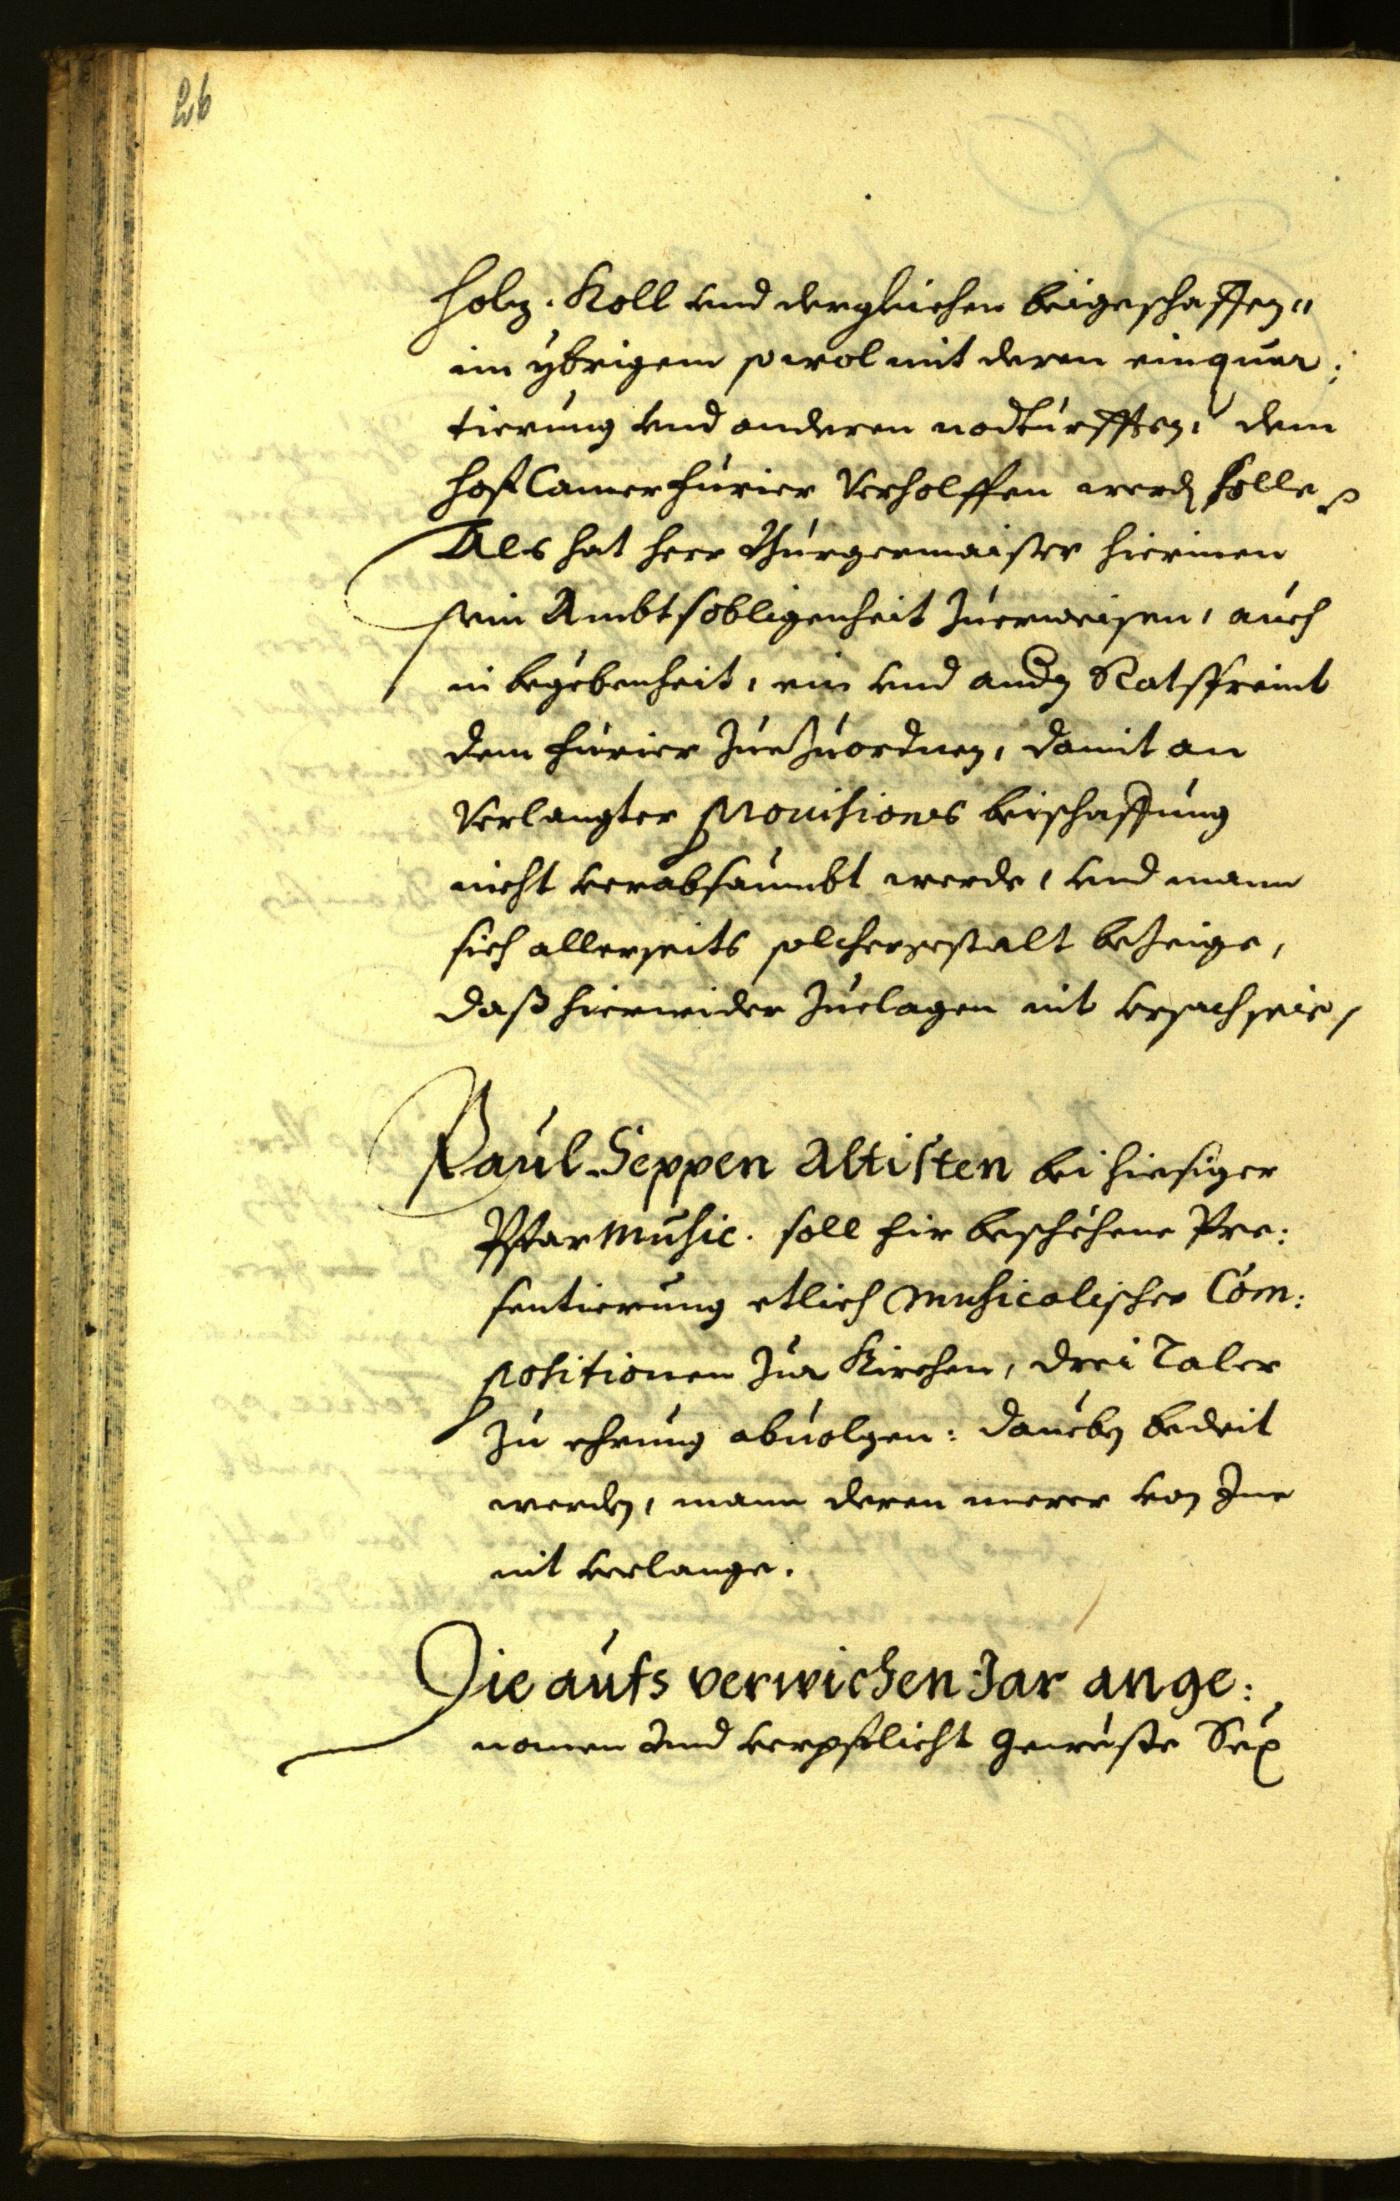 26
holz, Koll vnd dergleichen beigeschaffen,,
im ybrigem sowol mit deren einquar:
tierung vnd anderen nodturfften, dem
hofCamerfurier Verholffen werden solle,
Als hat herr Burgermaister hierinen
sein Ambtsobligenheit zuerweisen, auch
in begebenheit, ein vnd andern Ratsfreint
dem furier zuezuordnen, damit an
Verlangter provisiones beischaffung
nicht verabsaumbt werde, vnd mann
sich allerseits solchergestalt bezeige,
daß hierwider zuclagen nit vrsach seie,
Paul Seppen Altisten bei hiesiger
PfarMusic. soll fir beschehene Pre:
sentierung etlich Musicalischer Com:
positionen zur Kirchen, drei Taler
zu ehrung abuolgen: daneben bedeit
werden, mann deren merer von Ime
nit verlange.
Die aufs verwichen Jar ange:
nomen vnd verpflicht geweste Sex